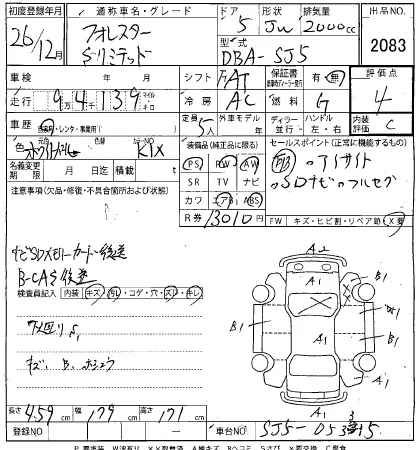 初度登録年月 通称車名・グレード ドア 形状 排気量 出品NO.
26/12月 フォレスター 5 JW 2000cc 2083
Sリミテッド 型式
DBA-SJ5
車検 年 月 シフト FAT 保証書 有・無 評価点
走行 9万4千139 キロ マイル 冷房 AC 燃料 G 4
車歴 自家用・レンタ・事業用( ) 定員 5人 外車モデル 年 ディーラー・並行 ハンドル 左・右 内装評価 C
色 ホワイトパール 色替 カラーNO K1X 装備品(純正品に限る) セールスポイント(正常に機能するもの)
名義変更期限 月 日迄 積載 t PS PW AW ○アイサイト
注意事項(欠品・修復・不具合箇所および状態) SR TV ナビ ○SDナビ ○フルセグ
カワ エアB ABS
R券 13010円 FW キズ・ヒビ割・リペア跡・X要
ナビSDメモリーカード後送
B-CAS後送
検査員記入 内装 キズ・汚レ・コゲ・穴・スレ・キレ
ワイ廻りS1
キズ、B、ホシュウ
A2
A1
B1
A1
B1
B1
A1
A1
A1
長さ 459cm 幅 179cm 高さ 171cm
登録NO 車台NO SJ5-053